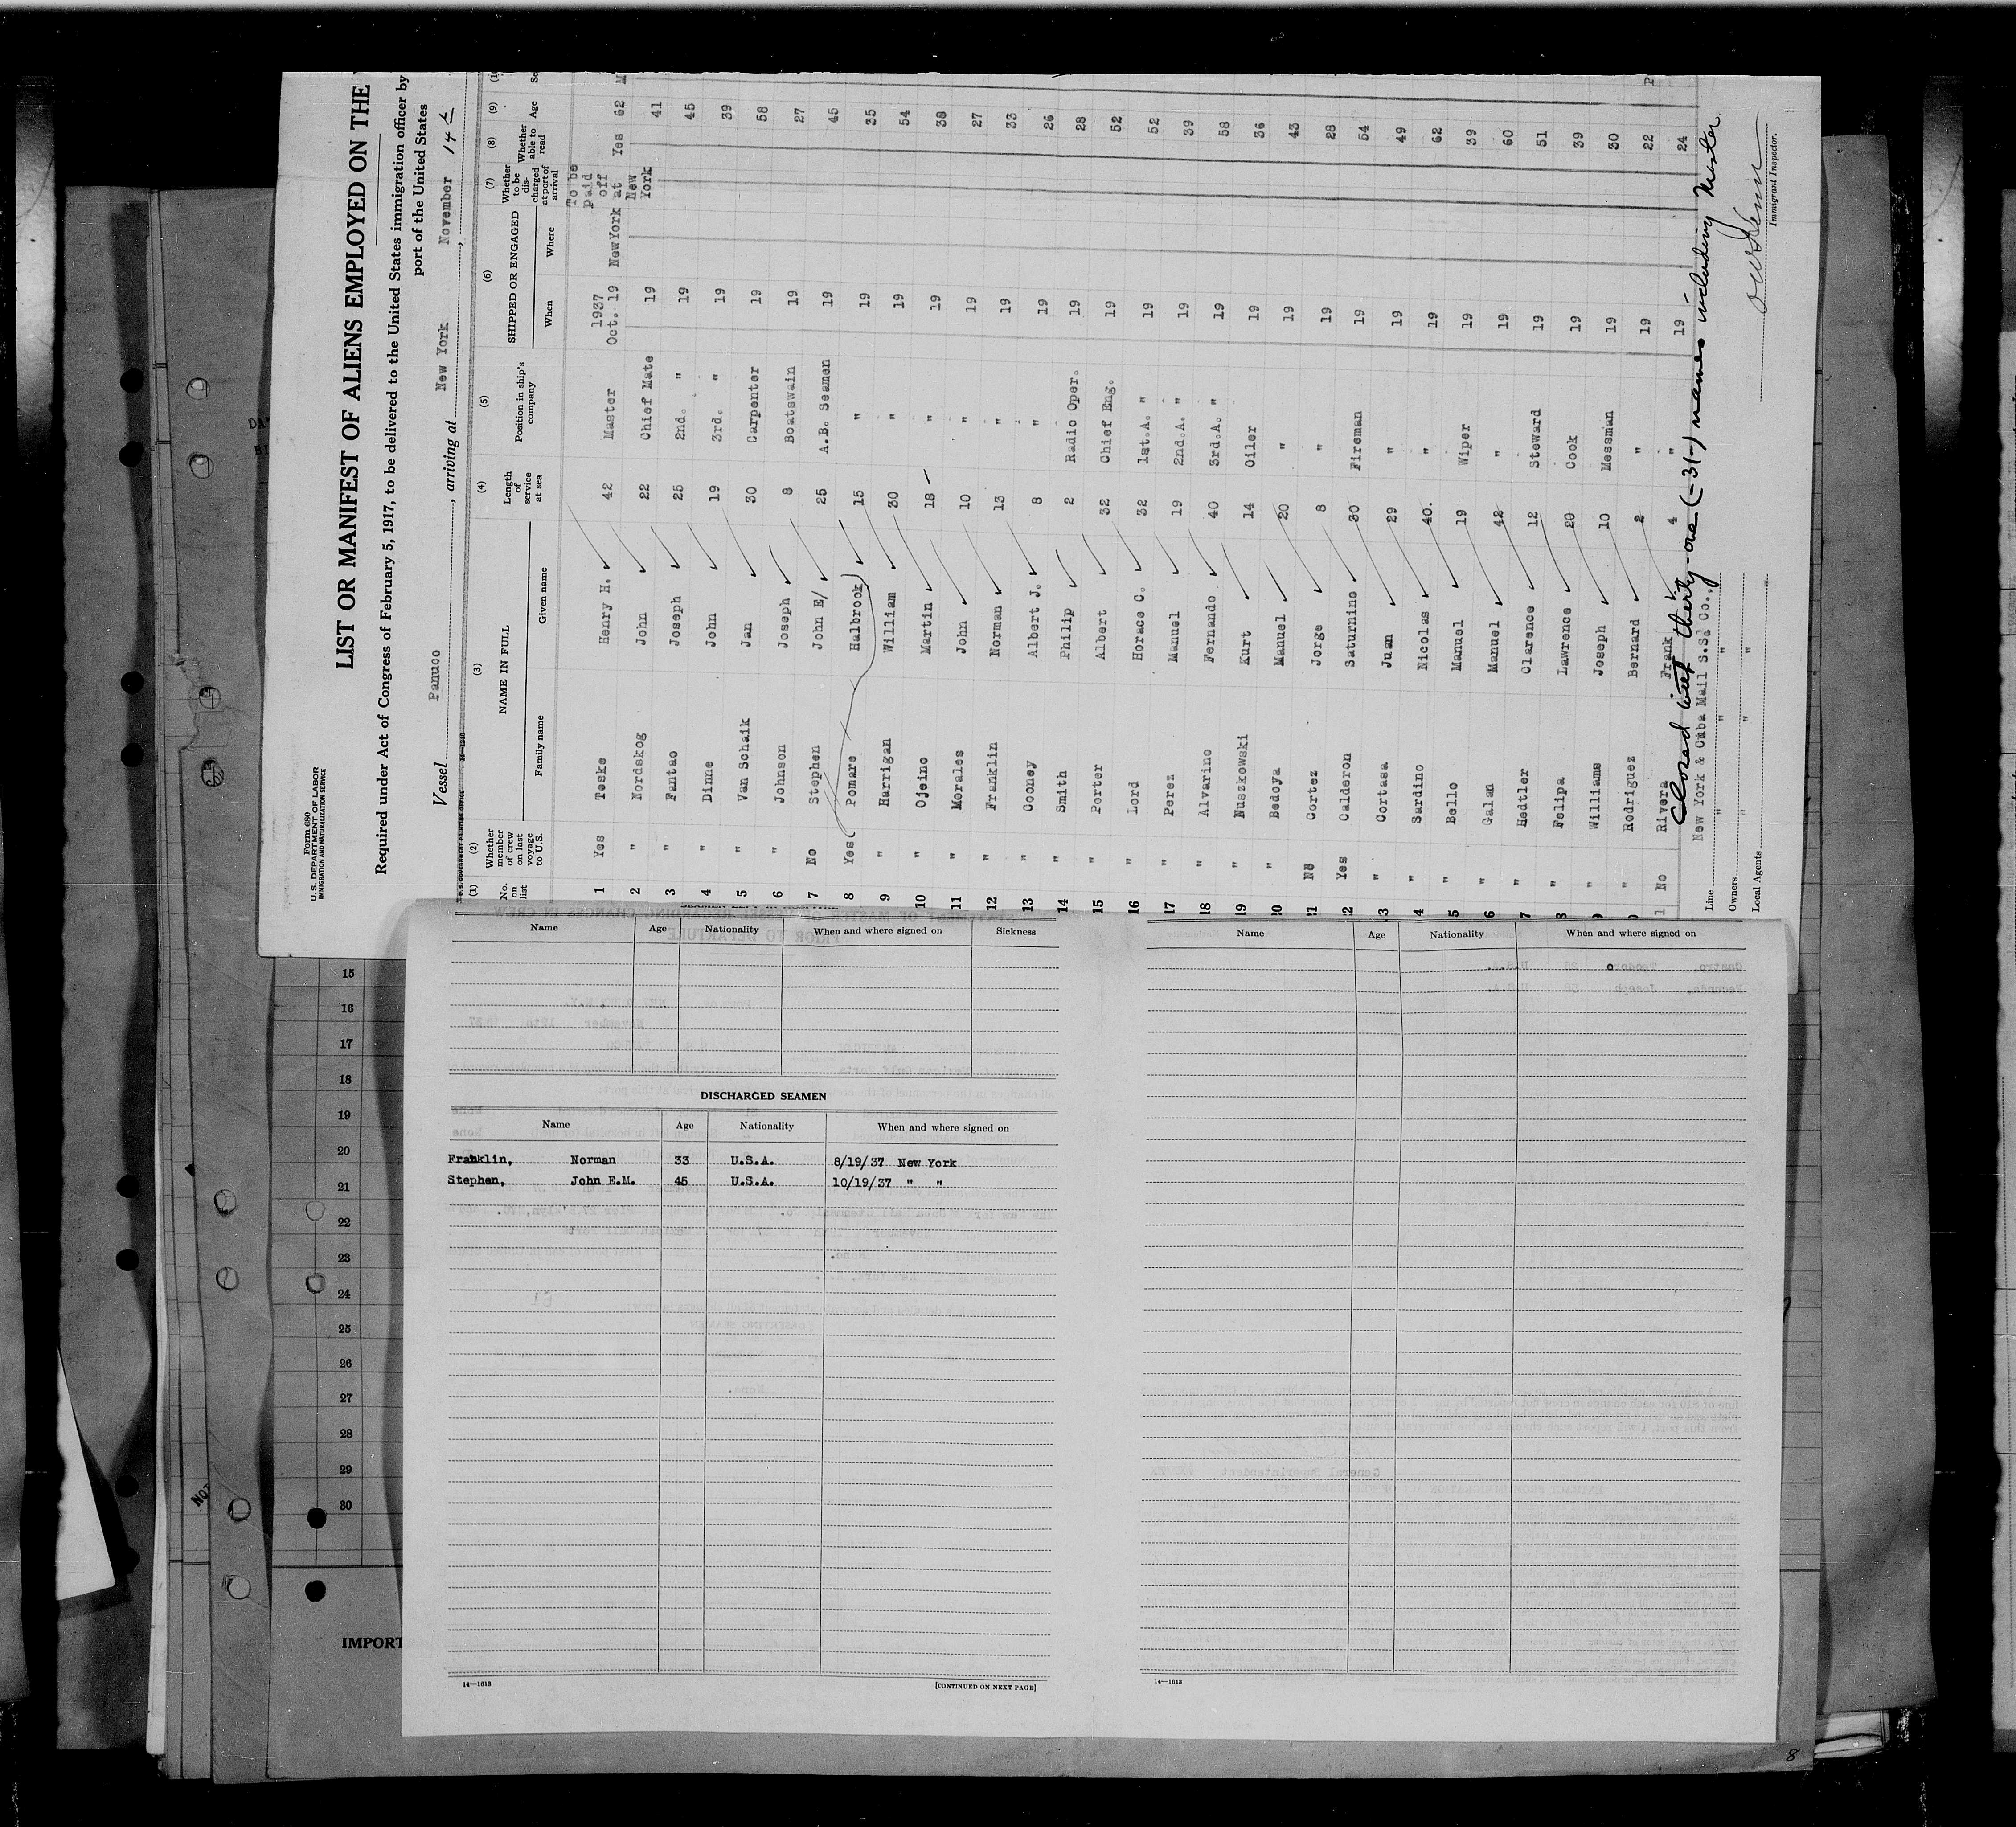 Form 680
U. S. DEPARTMENT OF LABOR
IMMIGRATION AND NATURALIZATION SERVICE
LIST OR MANIFEST OF ALIENS EMPLOYED ON THE
Required under Act of Congress of February 5, 1917, to be delivered to the United States immigration officer by
port of the United States
Vessel Panuco, arriving at New York November 14th,
(1) (2) (3) (4) (5) (6) (7) (8) (9)
No. on list Whether member of crew on last voyage to U.S. NAME IN FULL Family name Given name Length of service at sea Position in ship's company SHIPPED OR ENGAGED When Where Whether to be discharged at port of arrival Whether able to read Age Se
1937 To be Paid off at New York
1 Yes Teske Henry H. 42 Master Oct. 19 NewYork Yes 62 M
2 " Nordskog John 22 Chief Mate 19 41
3 " Fantao Joseph 25 2nd. " 19 45
4 " Dinne John 19 3rd. " 19 39
5 " Van Schaik Jan 30 Carpenter 19 58
6 " Johnson Joseph 8 Boatswain 19 27
7 No Stephen John E/ 25 A.B. Seamen 19 45
8 Yes Pomare Halbrock 15 " 19 35
9 " Harrigan William 30 " 19 54
10 " Ojeino Martin 18 " 19 38
11 " Morales John 10 " 19 27
12 " Franklin Norman 13 " 19 33
13 " Cooney Albert J. 8 " 19 26
14 " Smith Philip 2 Radio Oper. 19 28
15 " Porter Albert 32 Chief Eng. 19 52
16 " Lord Horace C. 32 1st.A. " 19 52
17 " Perez Manuel 19 2nd.A. " 19 39
18 " Alvarino Fernando 40 3rd.A. " 19 58
19 " Nuszkowski Kurt 14 Oiler 19 36
20 " Bedoya Manuel 20 " 19 43
21 No Cortez Jorge 8 " 19 28
2 Yes Calderon Saturnino 30 Fireman 19 54
3 " Cortasa Juan 29 " 19 49
4 " Sardino Nicolas 40. " 19 62
5 " Bello Manuel 19 Wiper 19 39
6 " Galan Manuel 42 " 19 60
7 " Hedtler Clarence 12 Steward 19 51
8 " Felipa Lawrence 20 Cook 19 39
9 " Williams Joseph 10 Messman 19 30
0 " Rodriguez Bernard 2 " 19 22
1 No Rivera Frank 4 " 19 24
Closed with thirty-one (-31-) names including Master
Line New York & Cuba Mail S.S. Co.,
Owners " " "
Local Agents " " "
Immigrant Inspector.
Name Age Nationality When and where signed on Sickness
DISCHARGED SEAMEN
Name Age Nationality When and where signed on
Franklin, Norman 33 U.S.A. 8/19/37 New York
Stephen, John E.M. 45 U.S.A. 10/19/37 " "
14—1613 [CONTINUED ON NEXT PAGE]
Name Age Nationality When and where signed on
14—1613
15
16
17
18
19
20
21
22
23
24
25
26
27
28
29
30
IMPORT
NOT
8